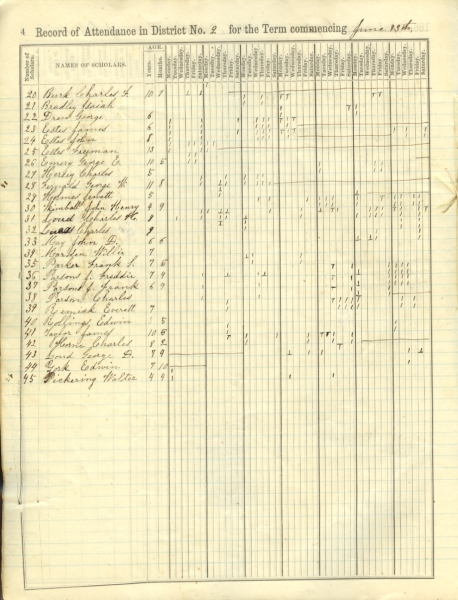 4 Record of Attendance in District No. 2 for the Term commencing June 13th
Number of Scholars. NAMES OF SCHOLARS. AGE. Years. Months. Monday. Tuesday. Wednesday. Thursday. Friday. Saturday.
20 Burk Charles F. 10 8
21 Bradley Isaiah
22 Drew George 6
23 Estes James 6
24 Estes John 8
25 Estes Freeman 13
26 Emery George E. 10 5
27 Hersey Charles 5
28 George W. 11 8
29 Holmes 5
30 Kimball John Henry 4 9
31 Loud Charles H. 8
32 Lucas Charles 9
33 May John D. 6 6
34 Marsden Willie 7
35 Parker Frank S. 7 5
36 Parsons J. Freddie 7 9
37 Parsons J. Frank 6 9
38 Parsons Charles
39 Everett 7
40 Rollins Edwin 5
41 Taylor James 10 5
42 Horne Charles 8 2
43 Loud George A. 8 9
44 York Edwin 7 10
45 Pickering Walter 4 9